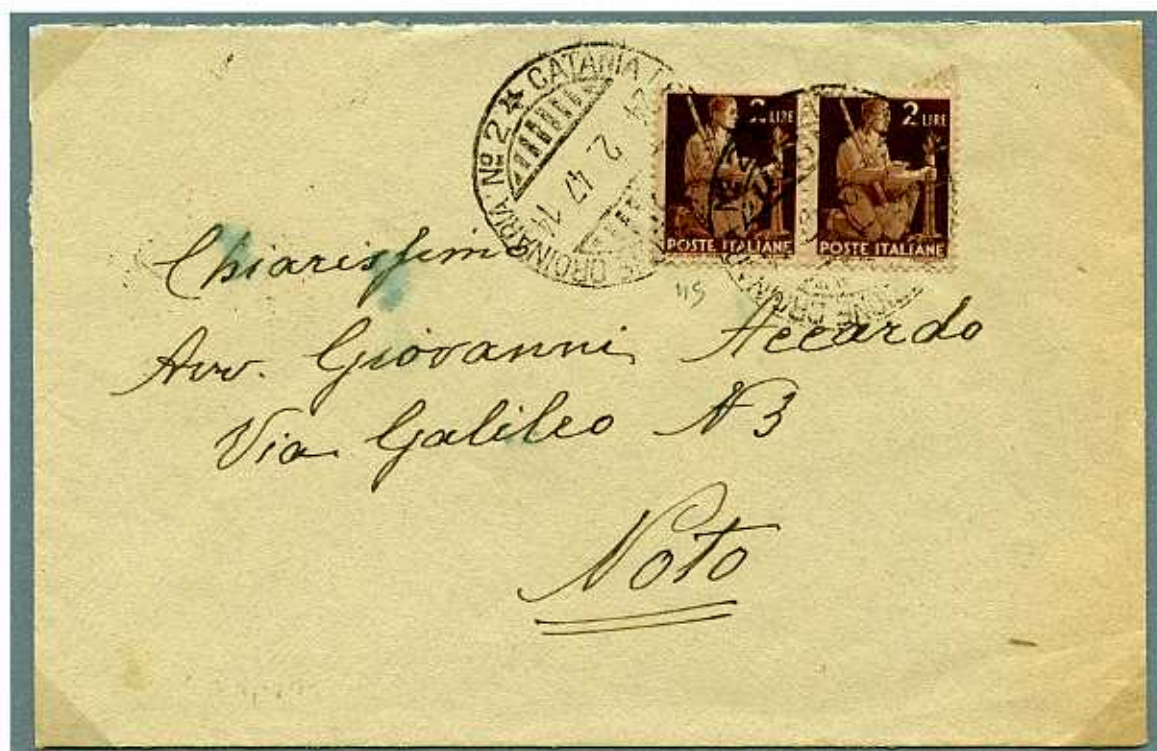 Nº 2 ★ CATANIA
24 2 47 14
ORDINARIA
2 LIRE
POSTE ITALIANE
2 LIRE
POSTE ITALIANE
Chiarissimo
Avv. Giovanni Accardo
Via Galileo N 3
Noto